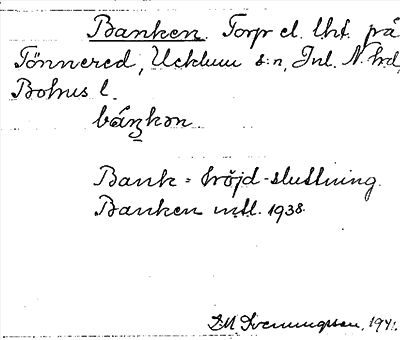 Banken. Torp el. lht. på
Tönnered, Ucklum s:n, Inl. N. hd,
Bohus l.
báŋkən
Bank = höjd-sluttning.
Banken mtl. 1938.
D.M. Svenningsson, 1941.